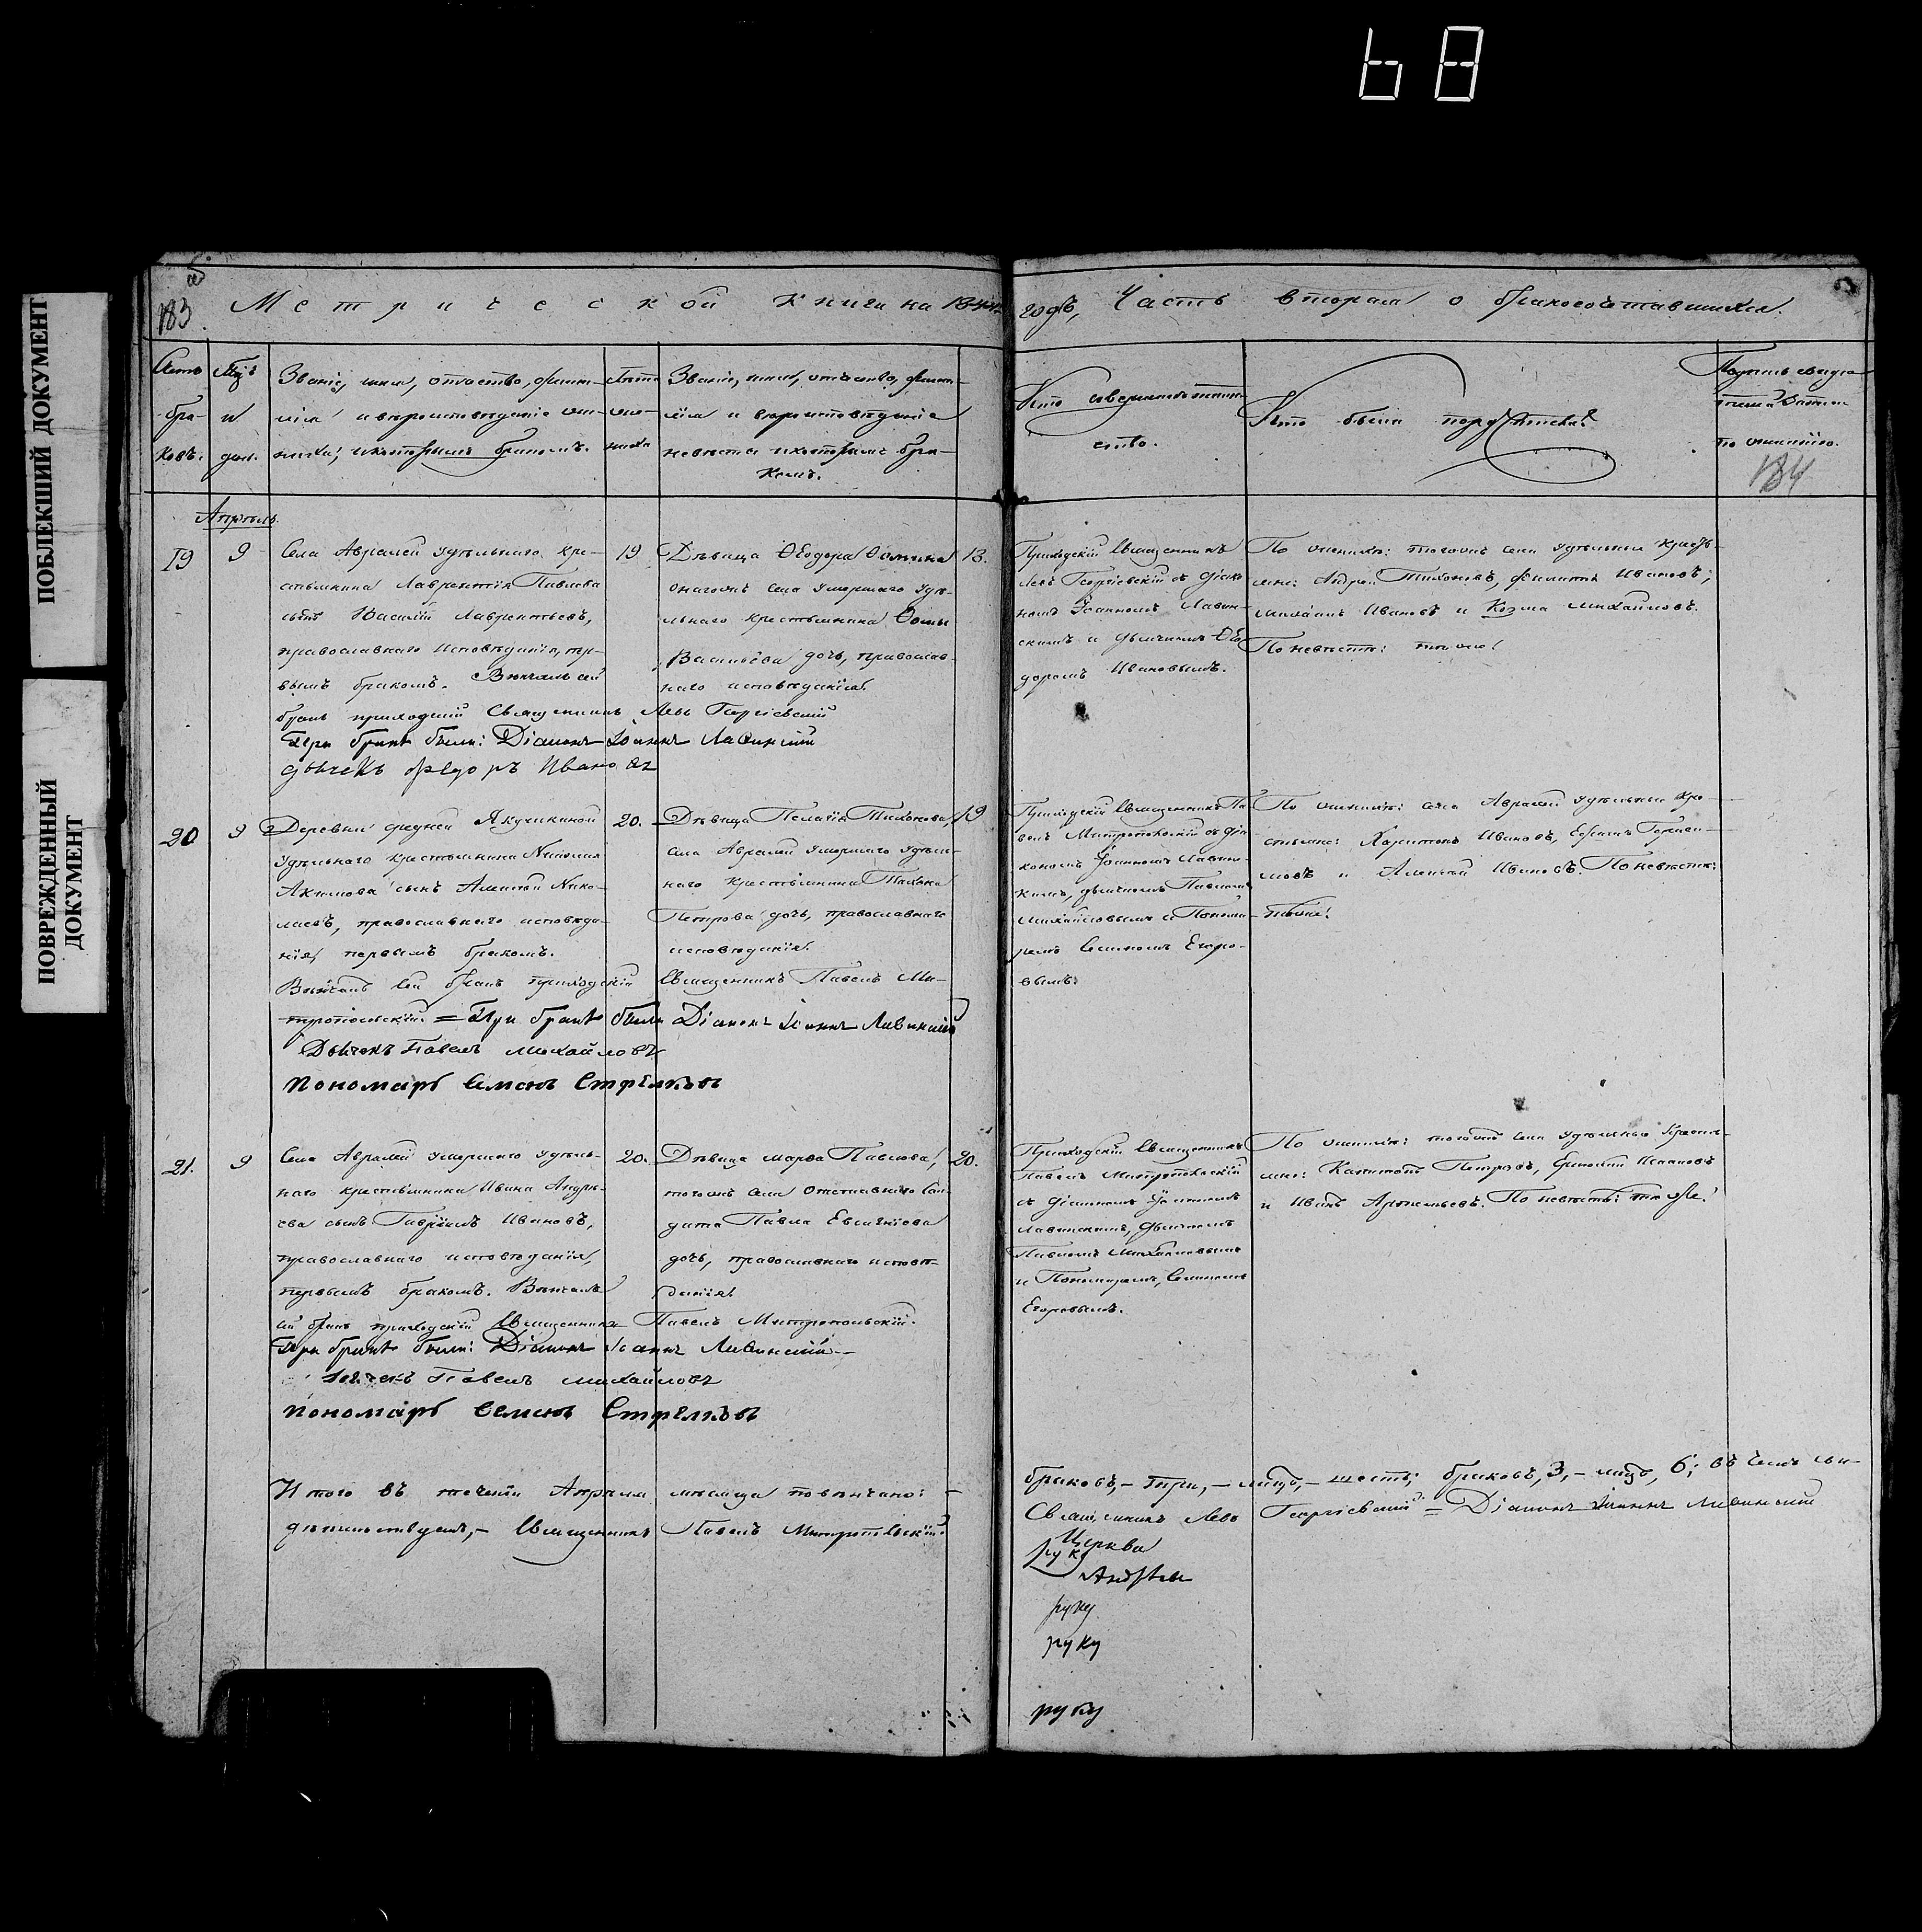 68
ПОБЛЕКШИЙ ДОКУМЕНТ
ПОВРЕЖДЕННЫЙ
ДОКУМЕНТ
183
Метрической книги на
годъ, Часть вторая о бракосочетавшихся.
Званіе, имя, отчество, фами-
лія и вероисповѣданіе же-
ниха, и которымъ бракомъ.
Званіе, имя, отчество, фами-
лія и вероисповѣданіе
невѣсты и которымъ бра-
комъ.
Кто совершалъ таин-
ство.
Кто были поручители?
184
Апрѣль.
19
9
Села Авралей удѣльнаго кре-
стьянина Лаврентія Павлова
сынъ Василій Лаврентьевъ,
православнаго исповѣданія, пер-
вымъ бракомъ. Вѣнчалъ сей
бракъ приходскій Священникъ Левъ Георгіевскій
При бракѣ были: Діаконъ Іоаннъ Лавинскій
дьячекъ Федоръ Ивановъ
19
Дѣвица Ѳеодора Ѳомина
онагожъ села умершаго удѣ-
льнаго крестьянина Ѳомы
Васильева дочь, православ-
наго исповѣданія.
Приходскій Священникъ
Левъ Георгіевскій съ діако-
номъ Іоанномъ Лавин-
скимъ и дьячкомъ Ѳео-
доромъ Ивановымъ.
По женихѣ: тогожъ села удѣльные крестья-
яне: Андрей Тихоновъ, Филиппъ Ивановъ,
Михаилъ Ивановъ и Козма Михайловъ.
По невѣстѣ: тѣже.
20
9
Деревни средней Якушкиной
удѣльнаго крестьянина Николая
Акимова сынъ Алексѣй Нико-
лаевъ, православнаго исповѣда-
нія, первымъ бракомъ.
Вѣнчалъ сей бракъ приходскій Священникъ Павелъ Ми-
тропольскій = При бракѣ были Діаконъ Іоаннъ Лавинскій
Дьячекъ Павелъ Михайловъ
Пономарь Семенъ Стрелковъ
20.
Дѣвица Пелагія Тихонова,
села Авралей умершаго удѣль-
наго крестьянина Тихона
Петрова дочь, православнаго
исповѣданія.
19
Приходскій Священникъ Па-
велъ Митропольскій съ діа-
кономъ Іоанномъ Лавин-
скимъ, дьячкомъ Павломъ
Михайловымъ и Понома-
ремъ Семеномъ Егоро-
вымъ.
По женихѣ: села Авралей удѣльные кре-
стьяне: Харитонъ Ивановъ, Ефимъ
и Алексѣй Ивановъ. По невѣстѣ:
тѣже.
21.
9
Села Авралей умершаго удѣль-
наго крестьянина Ивана Андрѣ-
ева сынъ Гавріилъ Ивановъ,
православнаго исповѣданія,
первымъ бракомъ. Вѣнчалъ
сей бракъ приходскій Священникъ Павелъ Митропольскій.
При бракѣ были: Діаконъ Іоаннъ Лавинскій
дьячекъ Павелъ Михайловъ
Пономарь Семенъ Стрелковъ
20.
Дѣвица Марѳа Павлова,
тогожъ села отставнаго Сол-
дата Павла Евсигнѣева
дочь, православнаго исповѣ-
данія.
20.
Приходскій Священникъ
Павелъ Митропольскій
съ діакономъ Іоанномъ
Лавинскимъ, дьячкомъ
Павломъ Михайловымъ
и Пономаремъ, Семеномъ
Егоровымъ.
По женихѣ: тогожъ села удѣльные крестья-
яне: Капитонъ Петровъ,
и Иванъ. По невѣстѣ: тѣ же.
Итого въ теченіи Апрѣля мѣсяца повѣнчано:
браковъ,- три,- лицъ,- шесть; браковъ, 3,- лицъ, 6; въ чемъ сви-
дѣтельствуемъ,- Священникъ Павелъ Митропольскій.
Священникъ Левъ Георгіевскій = Діаконъ Іоаннъ Лавинскій
Церква
руку
руку
руку
руку